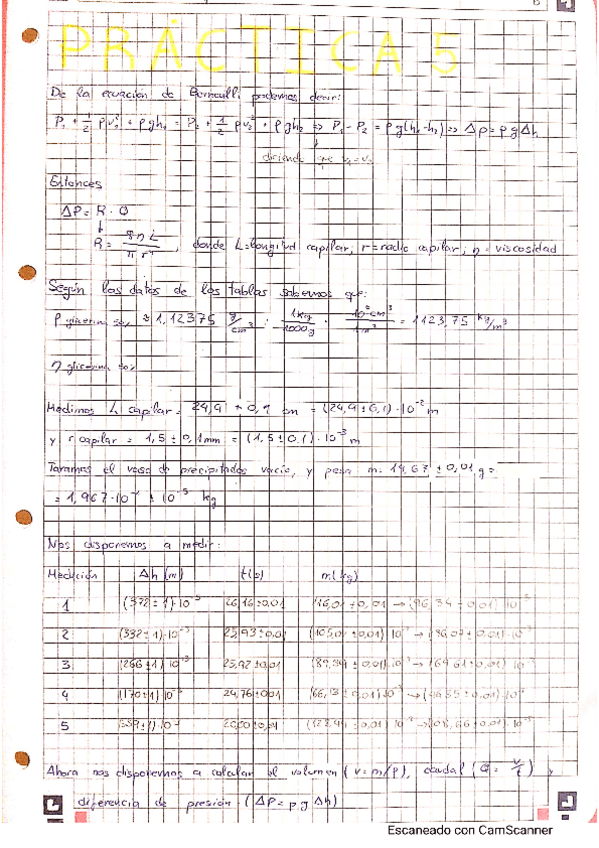 PRÁCTICA 5
De la ecuación de Bernoulli podemos decir:
P₁ + 1/2 ρv₁² + ρgh₁ = P₂ + 1/2 ρv₂² + ρgh₂ => P₁ - P₂ = ρg(h₁-h₂) => Δp = ρgΔh
diciendo que v₁=v₂
Entonces
ΔP = R · Q
R = 8ηL / πr⁴, donde L=longitud capilar; r=radio capilar; η=viscosidad
Según los datos de las tablas sabemos que:
ρ glicerina 50% ≈ 1,12375 g/cm³ · 1kg/1000g · 10⁶cm³/1m³ = 1123,75 kg/m³
η glicerina 50%
Medimos L capilar = 24,9 ± 0,1 cm = (24,9±0,1)·10⁻² m
y r capilar = 1,5 ± 0,1mm = (1,5±0,1)·10⁻³ m
Taramos el vaso de precipitados vacío, y pesa m = ± 0,01 g =
= 1,967·10⁻¹ ± 10⁻⁵ kg
Nos disponemos a medir:
Medición Δh (m) t(s) m(kg)
1 (372±1)·10⁻³ 26,16±0,01
2 25,93±0,01
3 (266±1)·10⁻³ 25,92±0,01
4 (170±1)·10⁻³ 24,76±0,01
5
Ahora nos disponemos a calcular el volumen (v=m/ρ), caudal (Q = v/t) y
diferencia de presión (ΔP = ρgΔh)
Escaneado con CamScanner